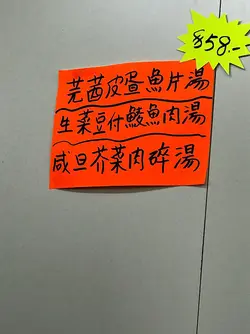 $58.-
芫茜皮蛋魚片湯
生菜豆付鯪魚肉湯
咸旦芥菜肉碎湯